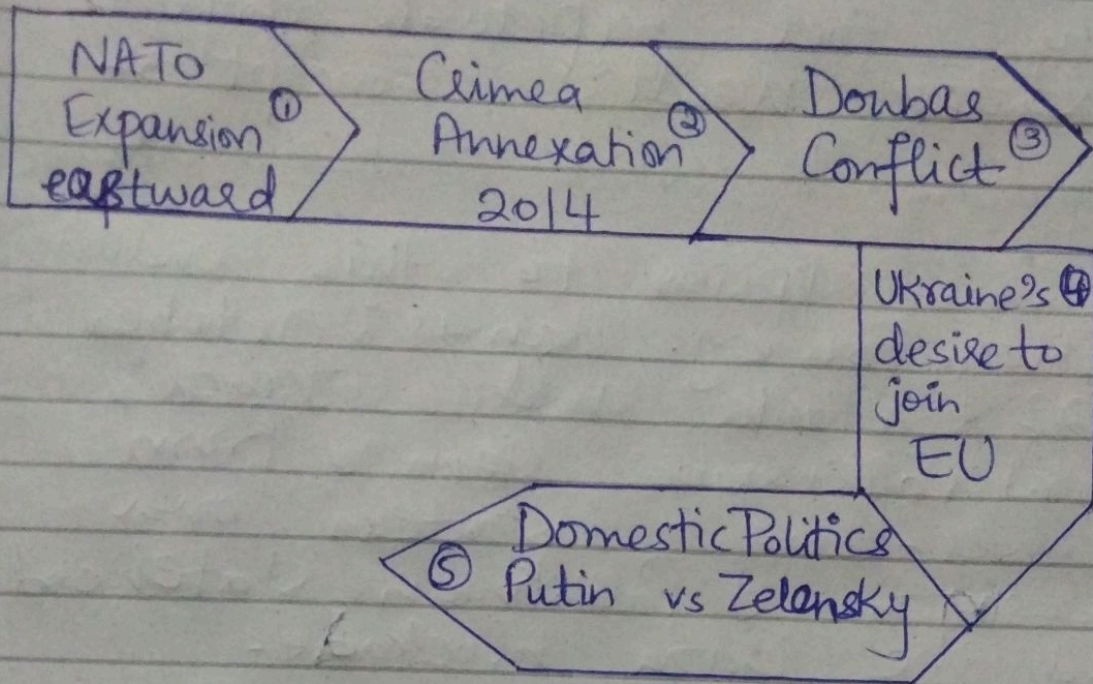 NATO
Expansion ①
eastward
Crimea
Annexation ②
2014
Donbas
Conflict ③
Ukraine's ④
desire to
join
EU
Domestic Politics
⑤ Putin vs Zelensky